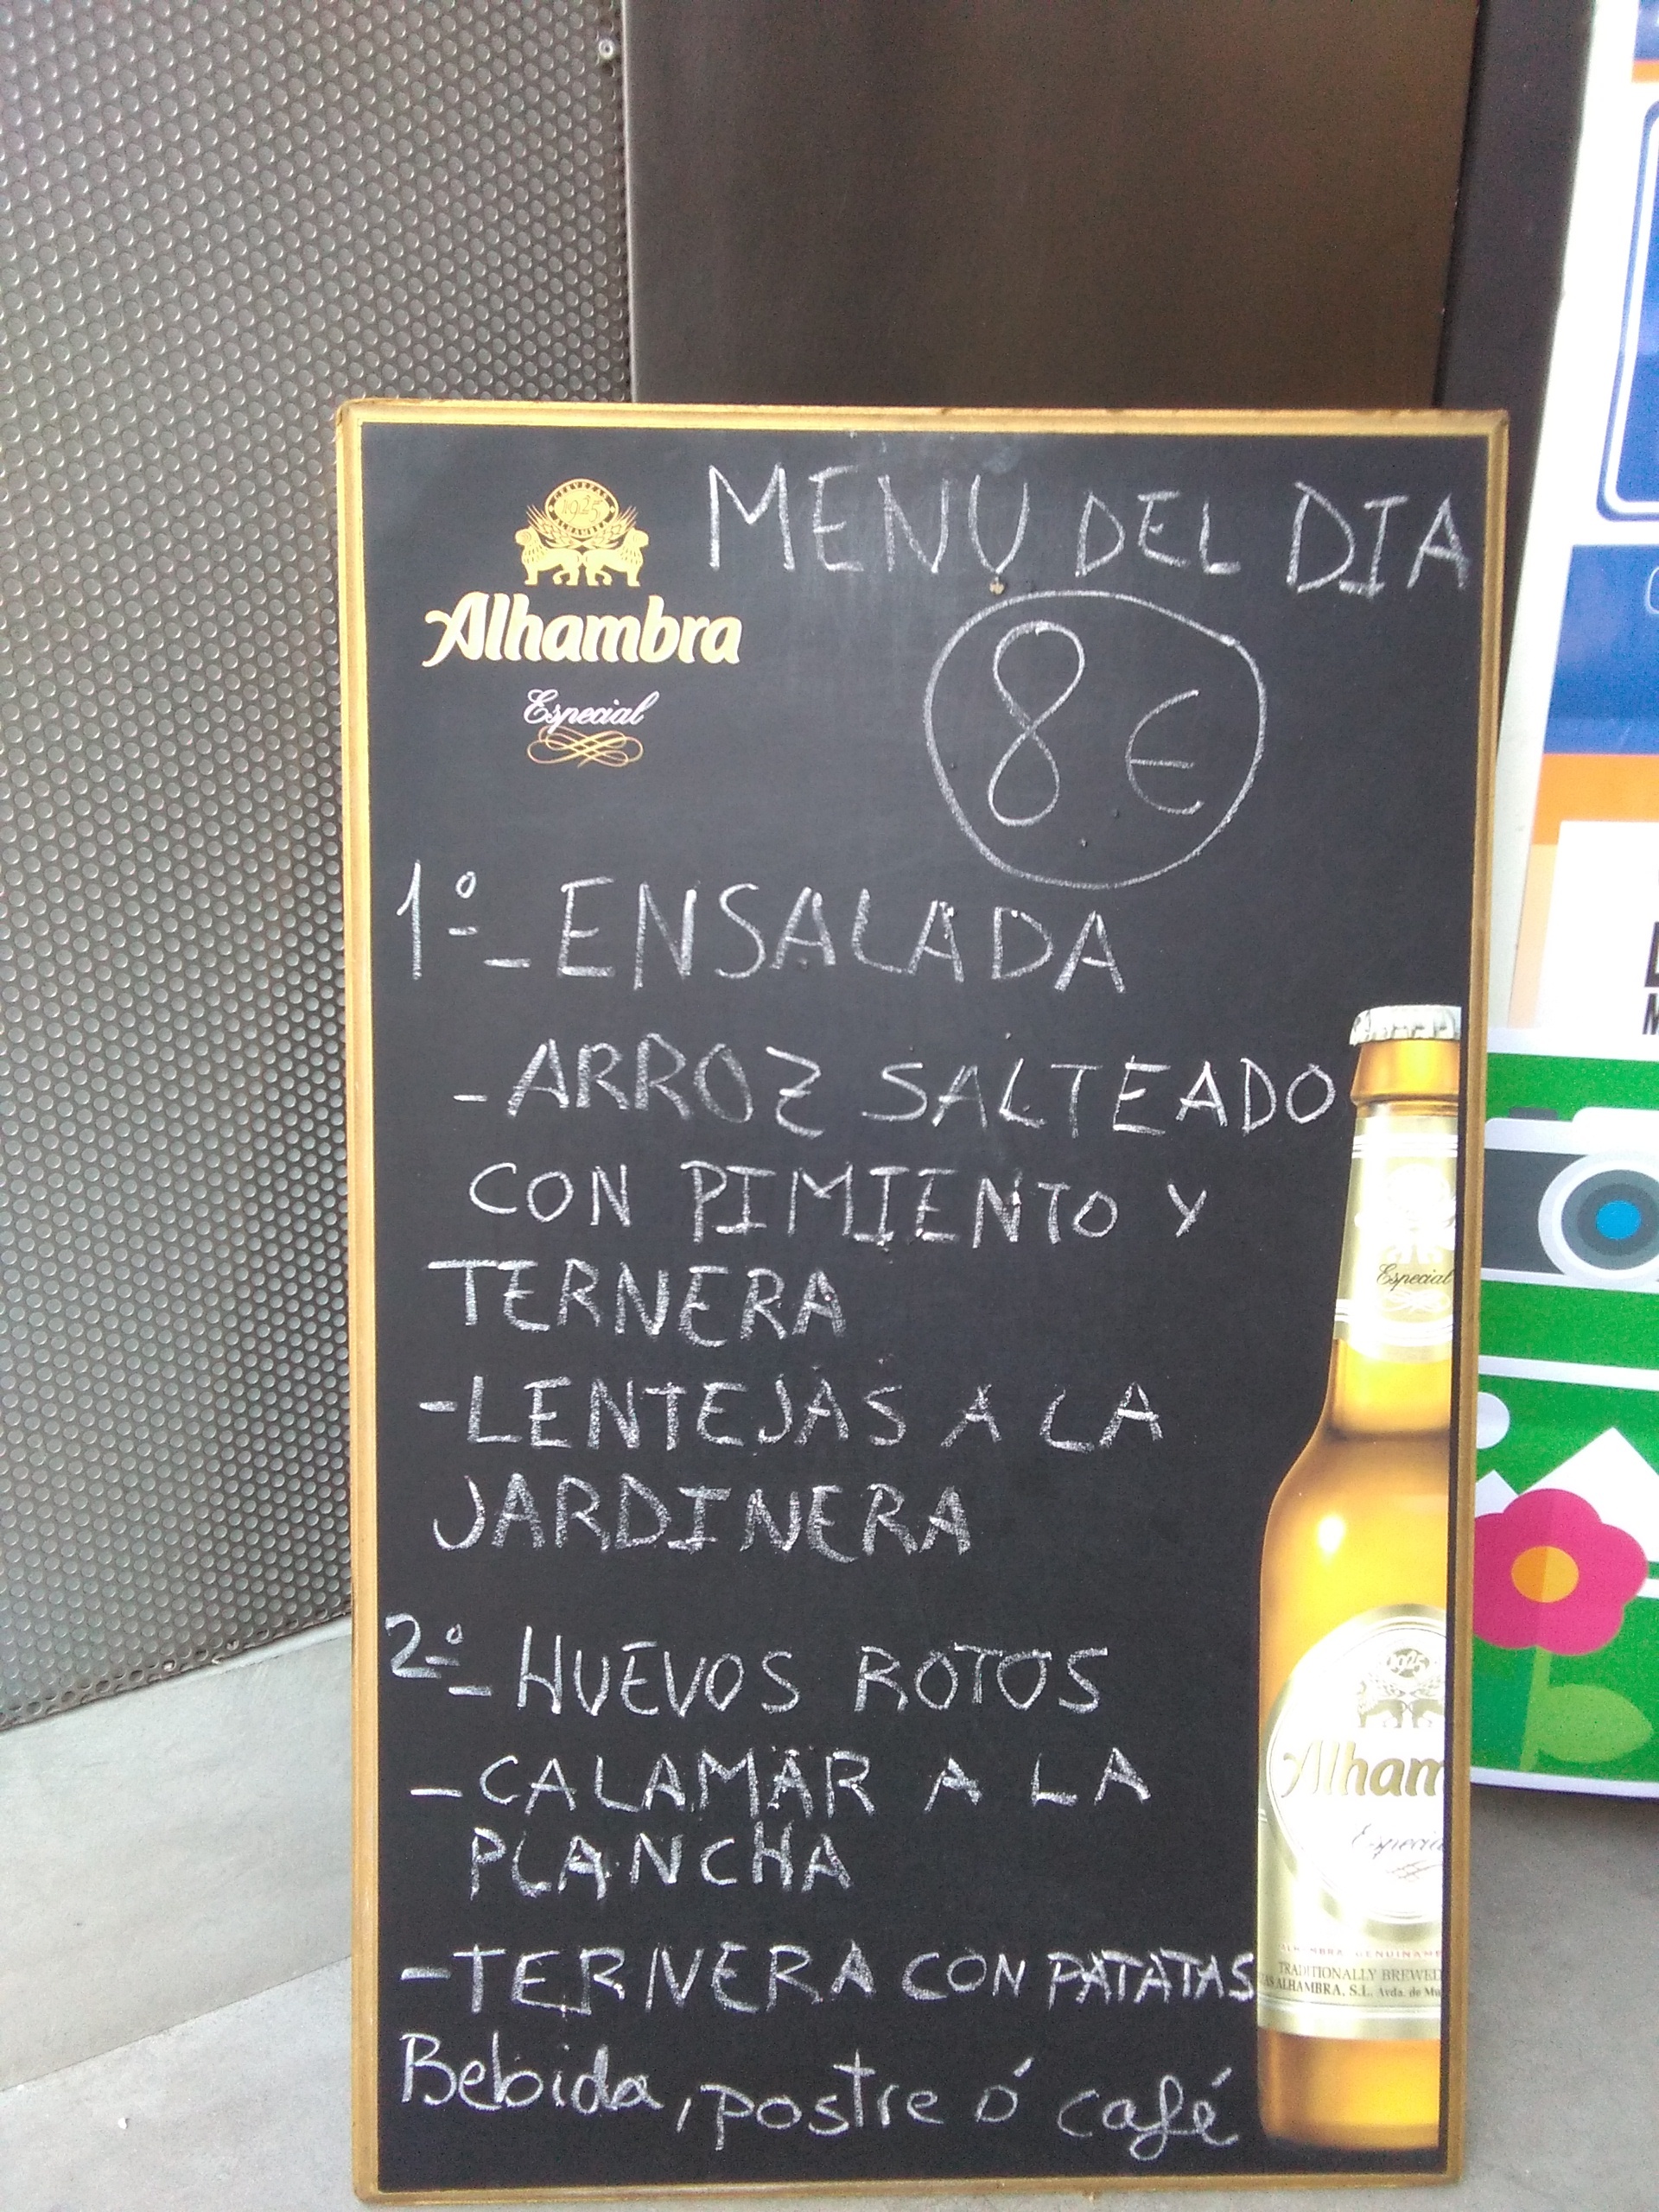 CERVEZAS
1925
ALHAMBRA
Alhambra
Especial
MENU DEL DIA
8€
1º- ENSALADA
- ARROZ SALTEADO
CON PIMIENTO Y
TERNERA
- LENTEJAS A LA
JARDINERA
2º- HUEVOS ROTOS
- CALAMAR A LA
PLANCHA
- TERNERA CON PATATAS
Bebida, postre ó café
Especial
1925
Alham
Especia
TRADITIONALLY BREWED
AS ALHAMBRA, S.L. Avda. de Mu